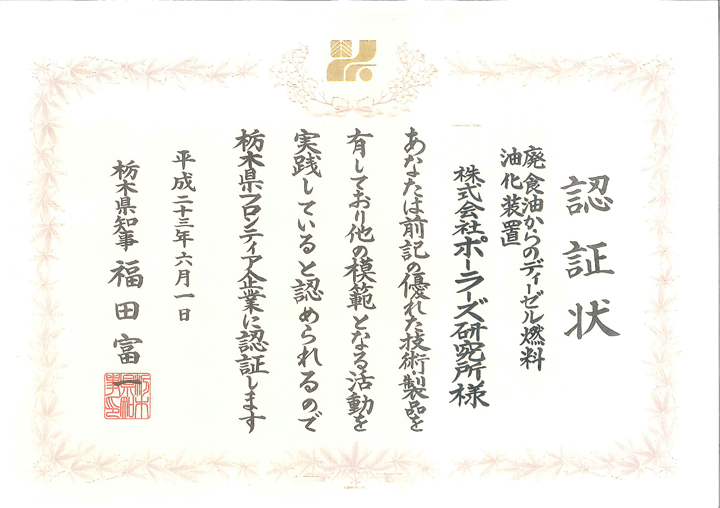 認証状
廃食油からのディーゼル燃料
油化装置
株式会社ポーラーズ研究所様
あなたは前記の優れた技術・製品を
有しており他の模範となる活動を
実践していると認められるので
栃木県フロンティア企業に認証します
平成二十三年六月一日
栃木県知事 福田富一